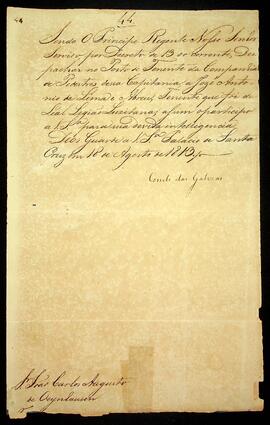 44
44
Sendo O Principe Regente Nosso Senhor
Servido por Decreto de 13 do corrente, Des-
pachar no Posto de Tenente da Companhia
de Pedestres dessa Capitania a Jozé Anto-
nio de Lima e Abreu, Tenente que foi da
Leal Legião Luzitana; assim o participo
a V. Sª para sua devida intelligencia.
Deos Guarde a V. Sª Palacio de Santa
Cruz em 18 de Agosto de 1813
Conde das Galveas
Sr João Carlos Augusto
de Oeynhausen